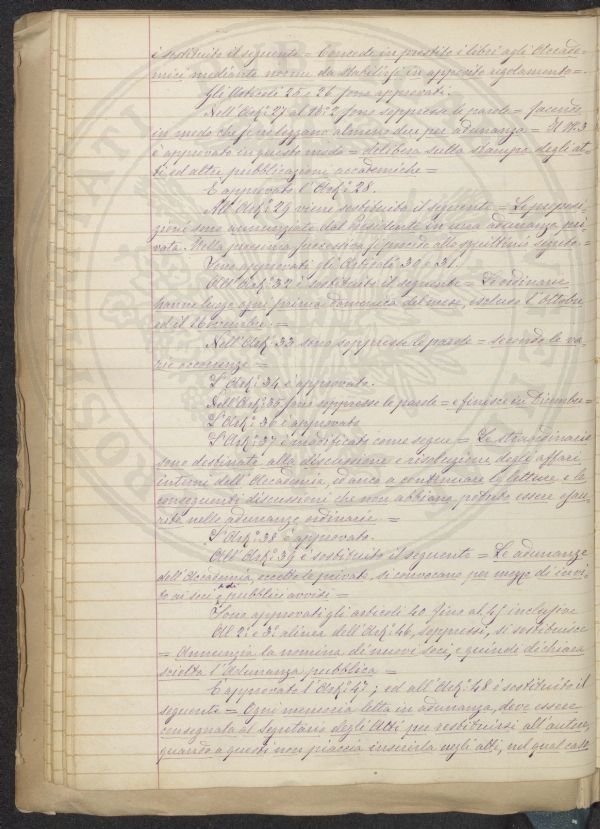 è sostituito il seguente = Concede in prestito i libri agli Accade-
mici mediante norme da stabilirsi in apposito regolamento =
Gli Articoli 25 e 26 sono approvati.
Nell'Art.° 27 al N.° 2 sono soppresse le parole = facendo
in modo che si leggano almeno due per adunanza = Il N.° 3
è approvato in questo modo = delibera sulla stampa degli at-
ti ed altre pubblicazioni accademiche =
È approvato l'Art.° 28.
All'Art.° 29 viene sostituito il seguente = Le proposi-
zioni sono annunziate dal Presidente in una adunanza pri-
vata. Nella prossima successiva si procede allo squittinio segreto =
Sono approvati gli Articoli 30 e 31.
All'Art.° 32 è sostituito il seguente = Le ordinarie
hanno luogo ogni prima domenica del mese, escluso l'Ottobre
ed il Novembre =
Nell'Art.° 33 sono soppresse le parole = secondo le va-
rie occorrenze =
L'Art.° 34 è approvato.
Nell'Art.° 35 sono soppresse le parole = e finisce in Dicembre =
L'Art.° 36 è approvato
L'Art.° 37 è modificato come segue = Le straordinarie
sono destinate alla discussione e risoluzione degli affari
interni dell'Accademia, ed anco a continuare le letture e le
conseguenti discussioni che non abbiano potuto essere esau-
rite nelle adunanze ordinarie =
L'Art.° 38 è approvato.
All'Art.° 39 è sostituito il seguente = Le adunanze
dell'Accademia, eccetto le private, si convocano per mezzo di invi-
to ai soci e di pubblici avvisi =
Sono approvati gli articoli 40 fino al 45 inclusive
All 2.° e 3.° alinea dell'Art.° 46, soppressi, si sostituisce
= Annunzia la nomina de' nuovi soci, e quindi dichiara
sciolta l'Adunanza pubblica =
È approvato l'Art.° 47; ed all'Art.° 48 è sostituito il
seguente = Ogni memoria letta in adunanza, deve essere
consegnata al Segretario degli Atti per restituirsi all'autore,
quando a questi non piaccia inserirla negli atti, nel qual caso